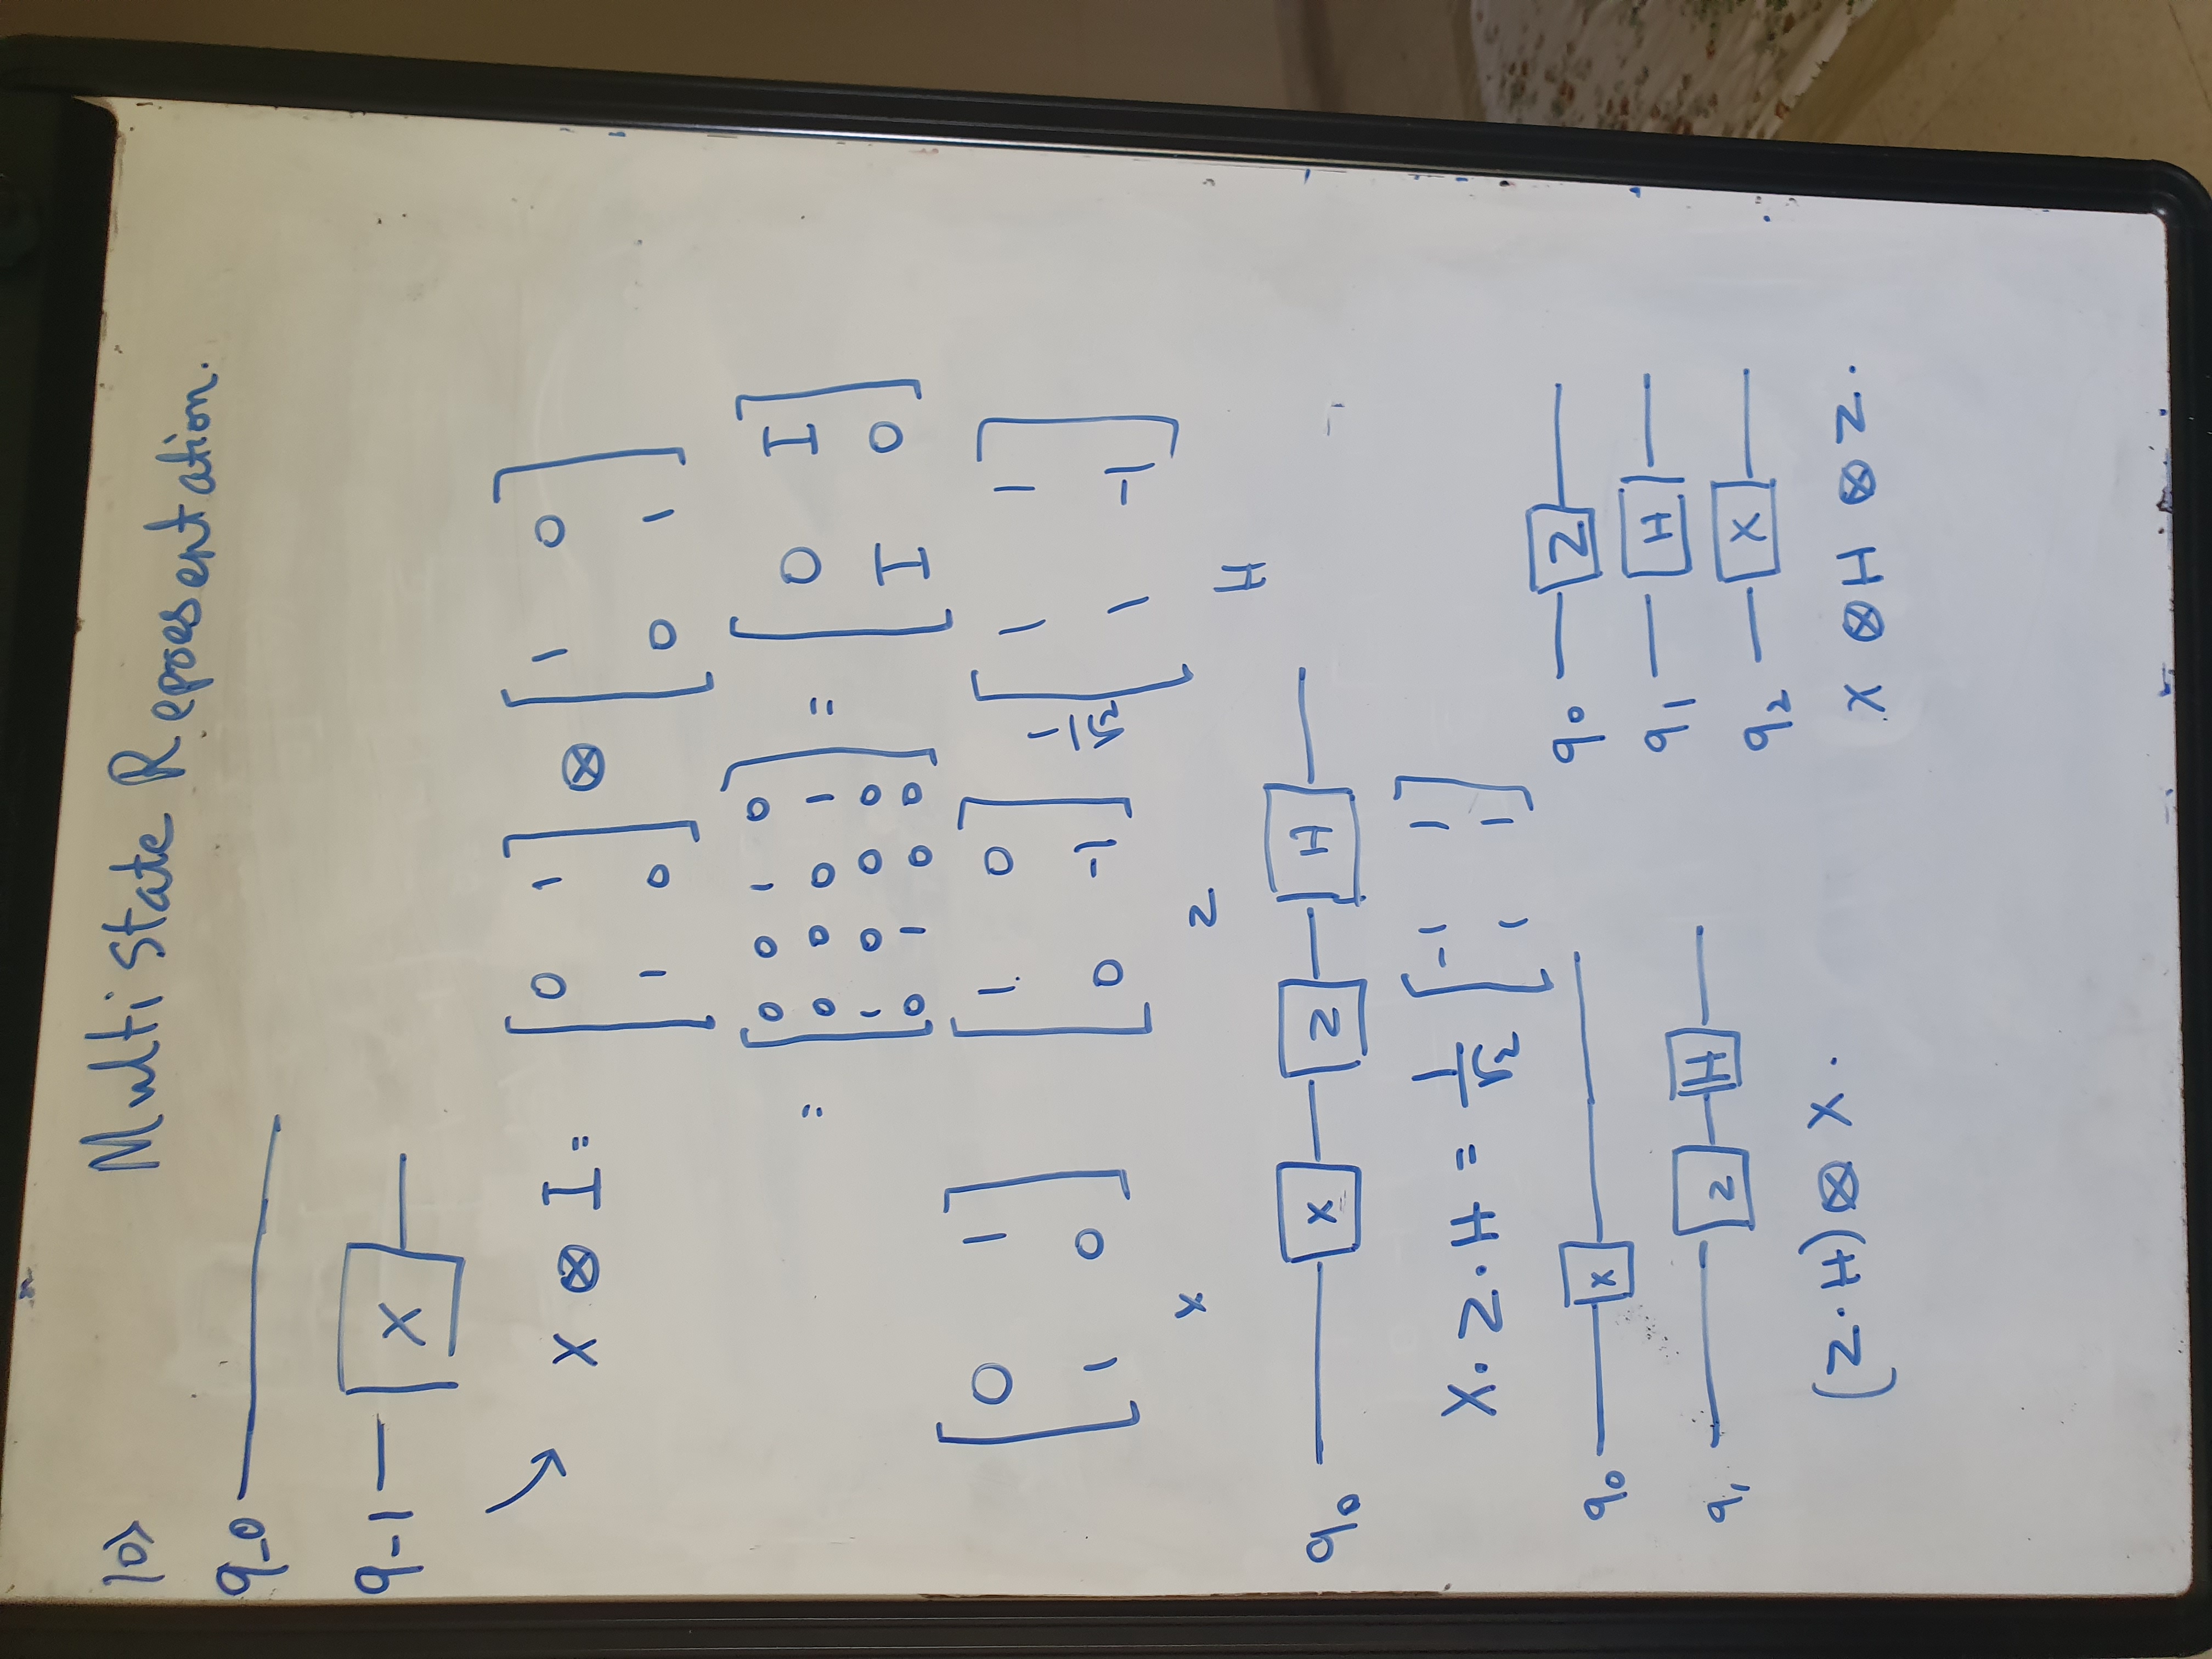 |0>
Multi State Representation.
q_0
q_1 X
X ⊗ I = [0 1; 1 0] ⊗ [1 0; 0 1]
= [0 0 1 0; 0 0 0 1; 1 0 0 0; 0 1 0 0] = [0 I; I 0]
[0 1; 1 0] [1 0; 0 -1] 1/√2 [1 1; 1 -1]
X Z H
q₀ X Z H
X . Z . H = 1/√2 [-1 1; 1 1]
q₀ X
q₁ Z H
(Z . H) ⊗ X .
q₀ Z
q₁ H
q₂ X
X ⊗ H ⊗ Z .